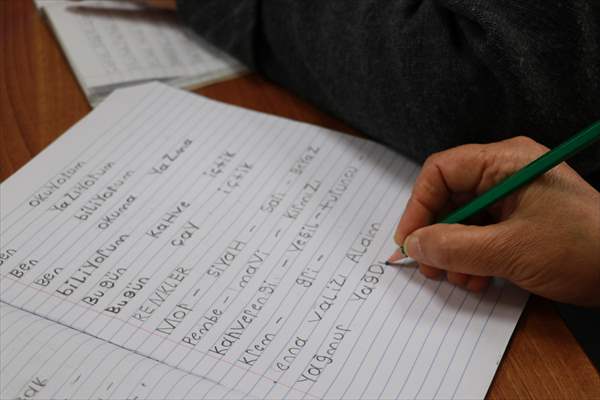 Ben okuyorum
Ben yazıyorum
Ben biliyorum
biliyorum okuma yazma
Bugün kahve içtik
Bugün çay içtik
RENKLER
Mor - siyah - sarı - Beyaz
Pembe - mavi - kırmızı
kahverengi - yeşil - turuncu -
krem - gri -
enna valizi ALdım
yağmur yağD